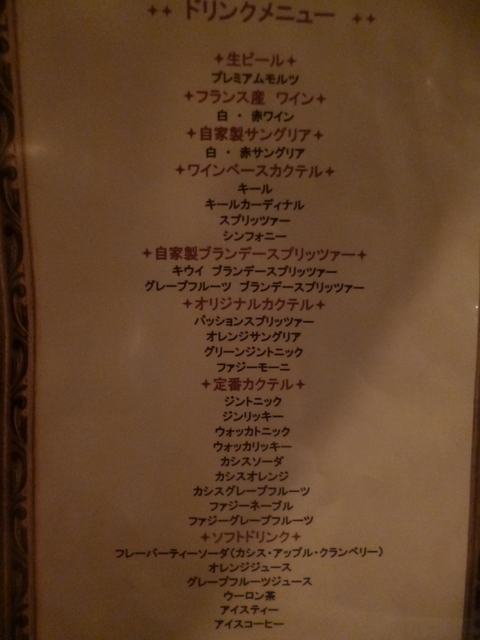 ✦✦ ドリンクメニュー ✦✦
✦生ビール✦
プレミアムモルツ
✦フランス産 ワイン✦
白 ・ 赤ワイン
✦自家製サングリア✦
白 ・ 赤サングリア
✦ワインベースカクテル✦
キール
キールカーディナル
スプリッツァー
シンフォニー
✦自家製ブランデースプリッツァー✦
キウイ ブランデースプリッツァー
グレープフルーツ ブランデースプリッツァー
✦オリジナルカクテル✦
パッションスプリッツァー
オレンジサングリア
グリーンジントニック
ファジーモーニ
✦定番カクテル✦
ジントニック
ジンリッキー
ウォッカトニック
ウォッカリッキー
カシスソーダ
カシスオレンジ
カシスグレープフルーツ
ファジーネーブル
ファジーグレープフルーツ
✦ソフトドリンク✦
フレーバーティーソーダ(カシス・アップル・クランベリー)
オレンジジュース
グレープフルーツジュース
ウーロン茶
アイスティー
アイスコーヒー